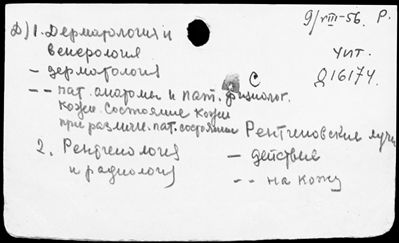 9/VIII-56. Р.
Д) 1. Дерматология и
венерология
чит.
Д16174.
– дерматология
С
– – пат. анатомия и пат. физиолог.
кожи. Состояние кожи
при различн. пат. состояниях
Рентгеновские лучи
2. Рентгенология
и радиология
– действие
– – на кожу